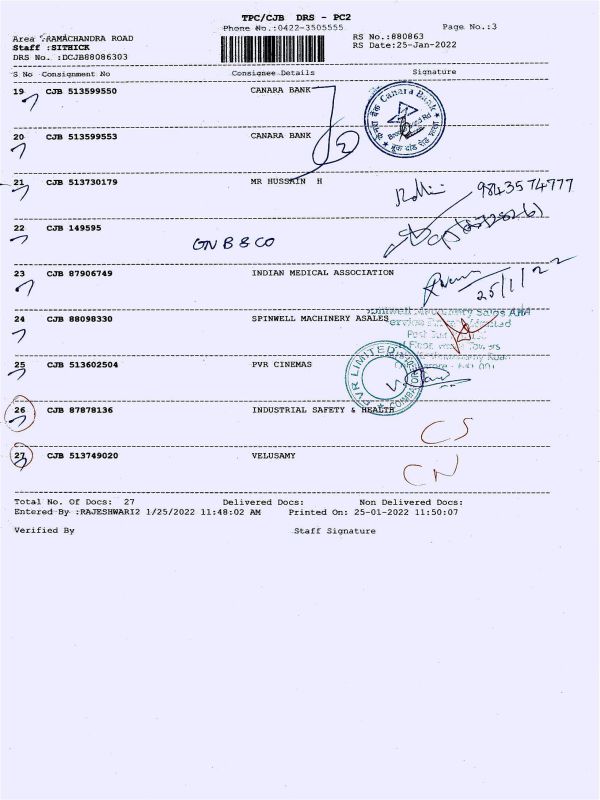 TPC/CJB DRS - PC2
Phone No.:0422-3505555 Page No.:3
Area :RAMACHANDRA ROAD RS No.:880863
Staff :SITHICK RS Date:25-Jan-2022
DRS No. :DCJB88086303
S No Consignment No Consignee Details Signature
19 CJB 513599550 CANARA BANK
Canara Bank
20 CJB 513599553 CANARA BANK
21 CJB 513730179 MR HUSSAIN H
9843574777
22 CJB 149595
GN B & CO
23 CJB 87906749 INDIAN MEDICAL ASSOCIATION
25/1/22
24 CJB 88098330 SPINWELL MACHINERY ASALES
25 CJB 513602504 PVR CINEMAS
PVR LIMITED
26 CJB 87878136 INDUSTRIAL SAFETY & HEALTH
CS
27 CJB 513749020 VELUSAMY
CN
Total No. Of Docs: 27 Delivered Docs: Non Delivered Docs:
Entered By :RAJESHWARI2 1/25/2022 11:48:02 AM Printed On: 25-01-2022 11:50:07
Verified By Staff Signature